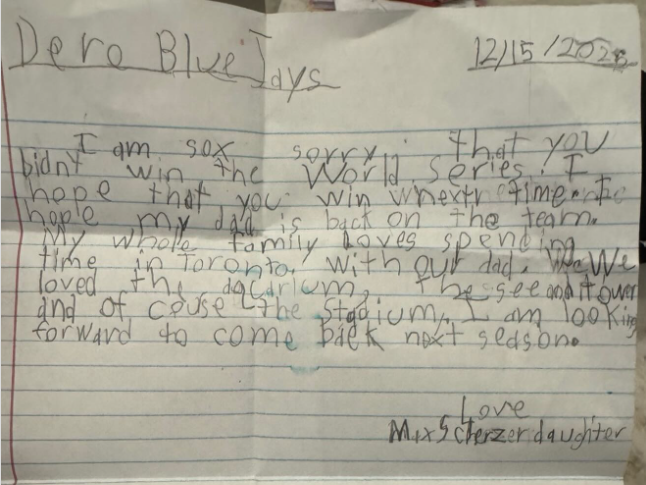 Dero Blue Jays
12/15/2025
I am sox sorry that you
bidnt win the World series. I
hope that you win whextr time. I
hope my dad is back on the team.
My whole family Loves spending
time in Toronto. with our dad. We
loved the aqcarium, the see and it ower
and of couse the stadium, I am looking
forward to come back next season.
Love
Max Scherzer daughter